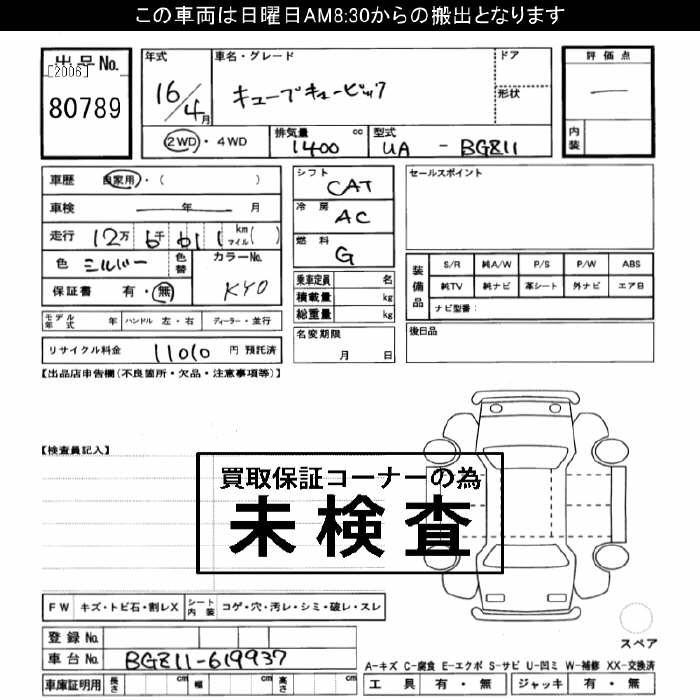 この車両は日曜日AM8:30からの搬出となります
出品No. 年式 車名・グレード ドア 評価点
[2006]
80789 16/4月 キューブキュービック 形状 —
2WD・4WD 排気量 cc 型式 内装
1400 UA - BGZ11
車歴 自家用・( ) シフト セールスポイント
CAT
車検 年 月 冷房 AC
走行 12万6千611km マイル( ) 燃料 G
色 シルバー 色替 カラーNo. 装備品 S/R 純A/W P/S P/W ABS
KY0 乗車定員 名 純TV 純ナビ 革シート 外ナビ エアB
保証書 有・無 積載量 kg ナビ型番:
総重量 kg
モデル年式 年 ハンドル 左・右 ディーラー・並行 名変期限 後日品
リサイクル料金 11010 円 預託済 月 日
【出品店申告欄(不良箇所・欠品・注意事項等)】
【検査員記入】
買取保証コーナーの為
未検査
FW キズ・トビ石・割レX シート内装 コゲ・穴・汚レ・シミ・破レ・スレ
登録No.
スペア
車台No. BGZ11-619937
A-キズ C-腐食 E-エクボ S-サビ U-凹ミ W-補修 XX-交換済
車庫証明用 長さ cm 幅 cm 高さ cm 工具 有・無 ジャッキ 有・無